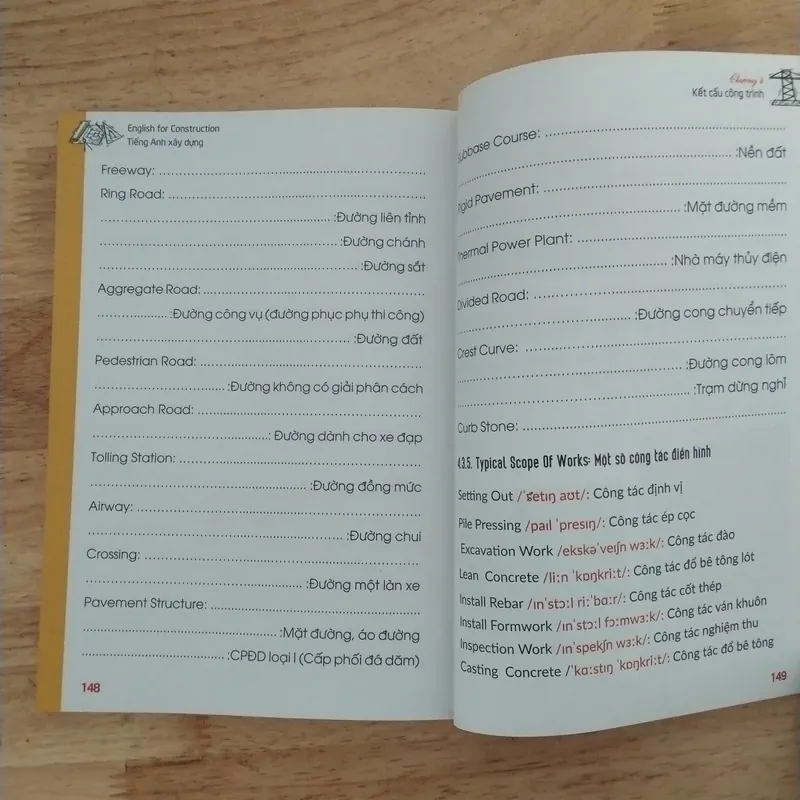 English for Construction
Tiếng Anh xây dựng
Freeway: ........................................
Ring Road: ........................................
........................................ :Đường liên tỉnh
........................................ :Đường chánh
........................................ :Đường sắt
Aggregate Road: ........................................
.................... :Đường công vụ (đường phục phụ thi công)
........................................ :Đường đất
Pedestrian Road: ........................................
........................................ :Đường không có giải phân cách
Approach Road: ........................................
........................................: Đường dành cho xe đạp
Tolling Station: ........................................
........................................ :Đường đồng mức
Airway: ........................................
........................................ :Đường chui
Crossing: ........................................
........................................ :Đường một làn xe
Pavement Structure: ........................................
........................................ :Mặt đường, áo đường
........................................ :CPĐD loại I (Cấp phối đá dăm)
148
Chương 4
Kết cấu công trình
Subbase Course: ........................................
........................................ :Nền đất
Rigid Pavement: ........................................
........................................ :Mặt đường mềm
Thermal Power Plant: ........................................
........................................ :Nhà máy thủy điện
Divided Road: ........................................
........................................ :Đường cong chuyển tiếp
Crest Curve: ........................................
........................................ :Đường cong lõm
........................................ :Trạm dừng nghỉ
Curb Stone: ........................................
4.3.5. Typical Scope Of Works: Một số công tác điển hình
Setting Out /ˈsetɪŋ aʊt/: Công tác định vị
Pile Pressing /paɪl ˈpresɪŋ/: Công tác ép cọc
Excavation Work /ekskəˈveɪʃn wɜːk/: Công tác đào
Lean Concrete /liːn ˈkɒŋkriːt/: Công tác đổ bê tông lót
Install Rebar /ɪnˈstɔːl riːˈbɑːr/: Công tác cốt thép
Install Formwork /ɪnˈstɔːl fɔːmwɜːk/: Công tác ván khuôn
Inspection Work /ɪnˈspekʃn wɜːk/: Công tác nghiệm thu
Casting Concrete /ˈkɑːstɪŋ ˈkɒŋkriːt/: Công tác đổ bê tông
149